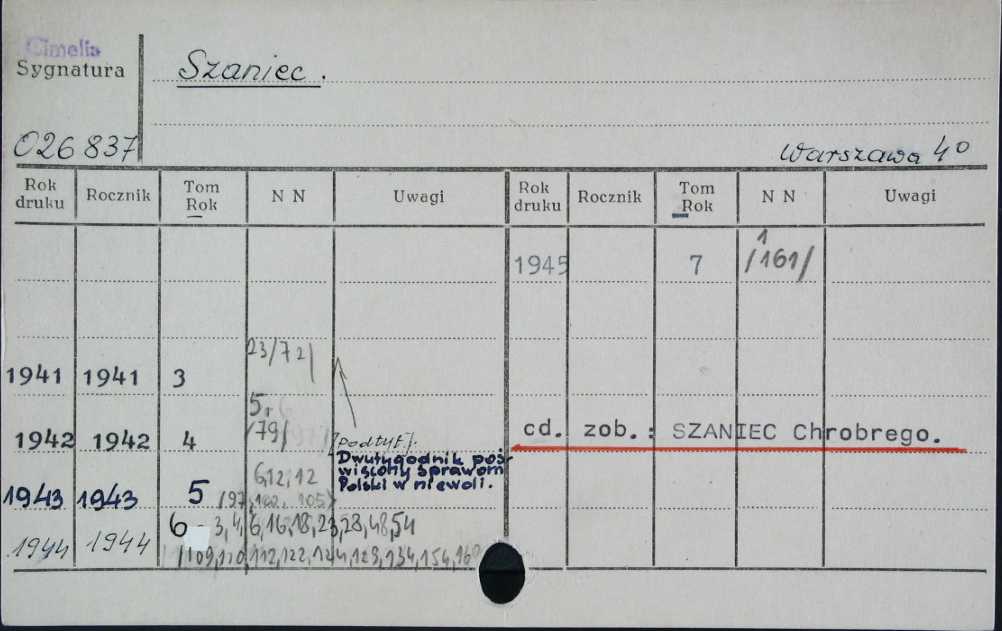 Cimelia
Sygnatura
Szaniec.
026 837
Warszawa 4°
Rok druku Rocznik Tom Rok N N Uwagi Rok druku Rocznik Tom Rok N N Uwagi
1945 7 1 /161/
1941 1941 3 23/72/
1942 1942 4 5, /79/
[podtyt.]:
Dwutygodnik poś-
więcony sprawom
Polski w niewoli.
cd. zob.: SZANIEC Chrobrego.
1943 1943 5 6,12,12
/97,102,105/
1944 1944 6 3,4,6,16,18,23,28,48,54
/109,110,112,122,124,129,134,154,160